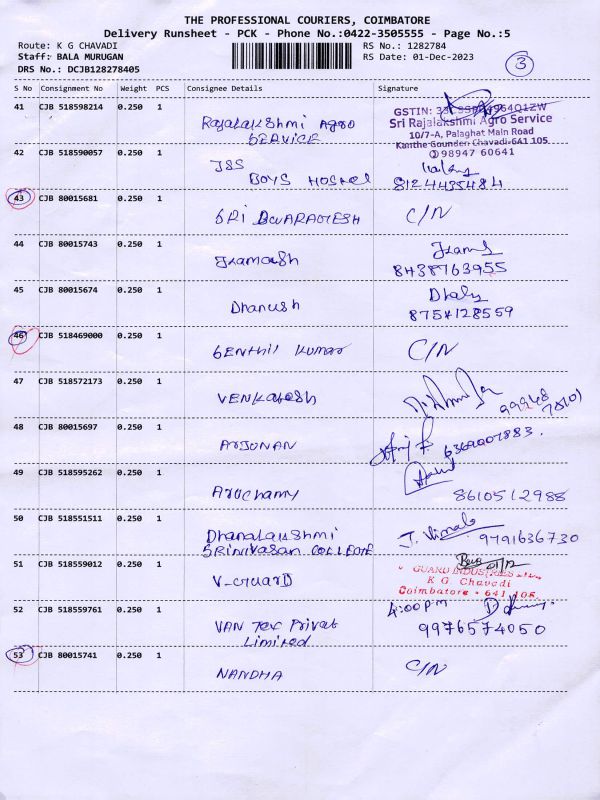 THE PROFESSIONAL COURIERS, COIMBATORE
Delivery Runsheet - PCK - Phone No.:0422-3505555 - Page No.:5
Route: K G CHAVADI RS No.: 1282784
Staff: BALA MURUGAN RS Date: 01-Dec-2023
DRS No.: DCJB128278405
3
S No Consignment No Weight PCS Consignee Details Signature
41 CJB 518598214 0.250 1 Rajalakshmi Agro
SERVICE
GSTIN:
Sri Rajalakshmi Agro Service
10/7-A, Palaghat Main Road
Kanthe Gounden Chavadi-641 105
98947 60641
42 CJB 518590057 0.250 1 JSS
BOYS HOSTEL
8124435484
43 CJB 80015681 0.250 1 SRI DWARAGESH C/N
44 CJB 80015743 0.250 1
8438763955
45 CJB 80015674 0.250 1 Dhanush
8754128559
46 CJB 518469000 0.250 1 SENTHIL KUMAR C/N
47 CJB 518572173 0.250 1 VENKATESH
99948
48 CJB 80015697 0.250 1 ARJUNAN
49 CJB 518595262 0.250 1 Aruchamy 8610512988
50 CJB 518551511 0.250 1 Dhanalakshmi
SRINIVASAN COLLEGE
J. Vimala 9791636730
51 CJB 518559012 0.250 1 V-GUARD
GUARD INDUSTRIES
K G. Chavadi
Coimbatore - 641 105.
52 CJB 518559761 0.250 1 VAN TEC Privat
Limited
4:00pm
9976574050
53 CJB 80015741 0.250 1 NANDHA C/N